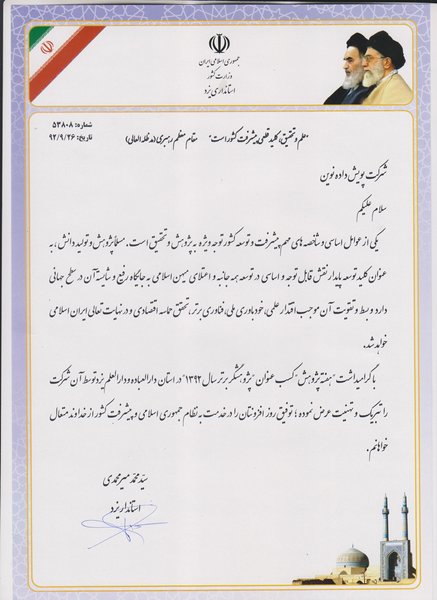 جمهوری اسلامی ایران
وزارت کشور
استانداری یزد
شماره: ۵۳۸۰۸
تاریخ: ۹۲/۹/۲۶
"علم و تحقیق، کلید قطعی پیشرفت کشور است." مقام معظم رهبری (مد ظله العالی)
شرکت پویش داده نوین
سلام علیکم
یکی از عوامل اساسی و شاخصه های مهم پیشرفت و توسعه کشور توجه ویژه به پژوهش و تحقیق است. مسلماً پژوهش و تولید دانش، به
عنوان کلید توسعه پایدار نقش قابل توجه و اساسی در توسعه همه جانبه و اعتلای میهن اسلامی به جایگاه رفیع و شایسته آن در سطح جهانی
دارد و بسط و تقویت آن موجب اقتدار علمی، خودباوری ملی، فناوری برتر، تحقق حماسه اقتصادی و در نهایت تعالی ایران اسلامی
خواهد شد.
با گرامیداشت "هفته پژوهش" کسب عنوان "پژوهشگر برتر سال ۱۳۹۲" در استان دارالعباده و دارالعلم یزد توسط آن شرکت
را تبریک و تهنیت عرض نموده؛ توفیق روز افزونتان را در خدمت به نظام جمهوری اسلامی و پیشرفت کشور از خداوند متعال
خواهانم.
سید محمد میرمحمدی
استاندار یزد